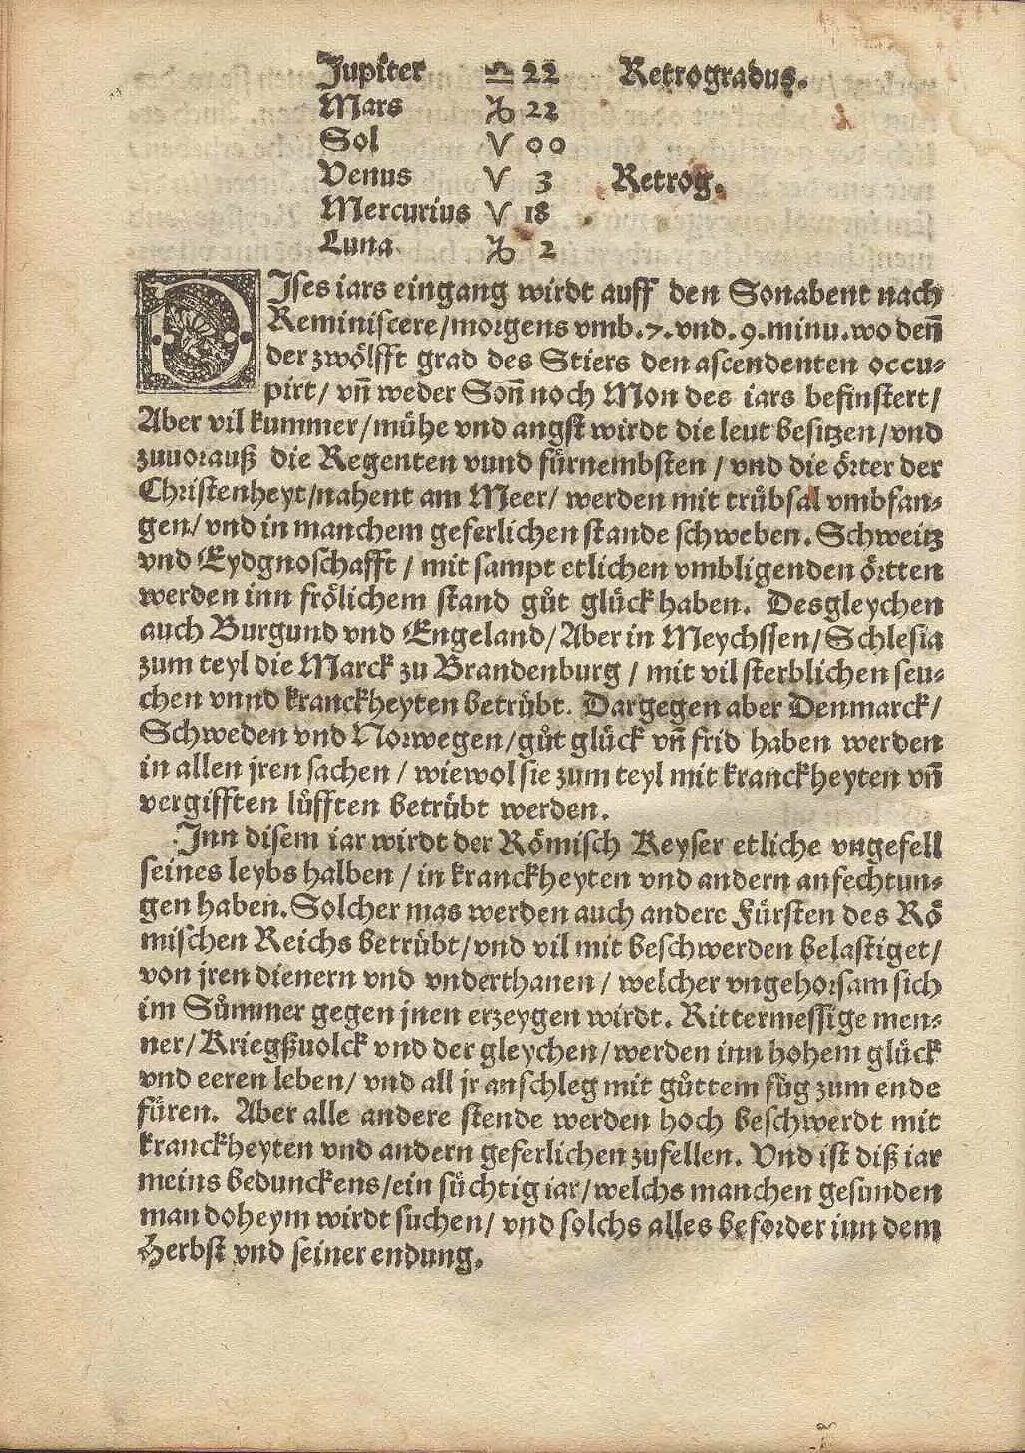 Jupiter ♎ 22 Retrogradus.
Mars ♑ 22
Sol ♈ 00
Venus ♈ 3 Retrog.
Mercurius ♈ 18
Luna ♑ 2
DIses iars eingang wirdt auff den Sonabent nach
Reminiscere/morgens vmb.7.vnd.9.minu.wo deñ
der zwölfft grad des Stiers den ascendenten occu⸗
pirt/ vñ weder Soñ noch Mon des iars befinstert/
Aber vil kummer/mühe vnd angst wirdt die leut besitzen/vnd
zuuorauß die Regenten vnnd fürnembsten / vnd die örter der
Christenheyt/nahent am Meer/ werden mit trübsal vmbfan⸗
gen/ vnd in manchem geferlichen stande schweben. Schweitz
vnd Eydgnoschafft / mit sampt etlichen vmbligenden örtten
werden inn frölichem stand gůt glück haben. Desgleychen
auch Burgund vnd Engeland/Aber in Meychssen/Schlesia
zum teyl die Marck zu Brandenburg / mit vil sterblichen seu⸗
chen vnnd kranckheyten betrübt. Dargegen aber Denmarck/
Schweden vnd Norwegen/gůt glück vñ frid haben werden
in allen jren sachen / wiewol sie zum teyl mit kranckheyten vñ
vergifften lüfften betrübt werden.
Inn disem iar wirdt der Römisch Keyser etliche vngefell
seines leybs halben / in kranckheyten vnd andern anfechtun⸗
gen haben. Solcher mas werden auch andere Fürsten des Rö
mischen Reichs betrübt/vnd vil mit beschwerden belastiget/
von jren dienern vnd vnderthanen / welcher vngehorsam sich
im Summer gegen jnen erzeygen wirdt. Rittermessige men⸗
ner/Kriegßuolck vnd der gleychen/werden inn hohem glück
vnd eeren leben/ vnd all jr anschleg mit gůttem fůg zum ende
füren. Aber alle andere stende werden hoch beschwerdt mit
kranckheyten vnd andern geferlichen zufellen. Vnd ist diß iar
meins bedunckens/ein süchtig iar/welchs manchen gesunden
man doheym wirdt suchen/ vnd solchs alles besorder inn dem
Herbst vnd seiner endung.